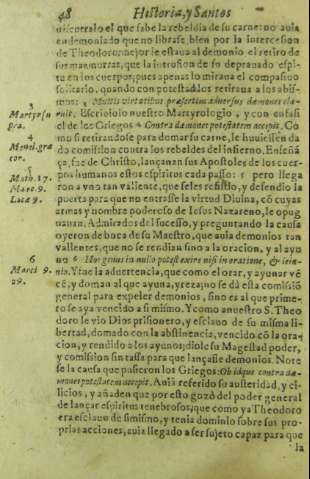 48 Historia, y Santos
corralo el que sabe la rebeldia de su carne: no auia
endemoniado que no librase, bien por la intercesion
de Theodoro: mejor le estaua al demonio el retiro de
sus mazmorras, que la intrusion de su deprauado espi-
tu en los cuerpos; pues apenas lo miraua el compasiuo
solitario, quando con potestad los retiraua a los abis-
mos: 3 Multis virtutibus præsertim aduersus dæmones cla-
ruit. Escriuiolo nuestro Martyrologio, y con enfasi
el de los Griegos 4 Contra dæmones potestatem accepit. Co
mo si retirandose para domar su carne, le huuiessen da
do comission contra los rebeldes del infierno. Enseña
ça, fue de Christo, lançauan sus Apostoles de los cuer-
pos humanos estos espiritus cada passo: 5 pero llega
ron a vno tan valiente, que se les resistio, y defendio la
puerta para que no entrasse la virtud Diuina, cõ cuyas
armas y nombre poderoso de Iesus Nazareno, le opug
nauan. Admirados del sucesso, y preguntando la causa
oyeron de boca de su Maestro, que auia demonios tan
vallentes, que no se rendian sino a la oracion, y al ayu
no 6 Hoc genius in nullo potest exire nisi in oratione, & ieiu-
nio. Y trae la aduertencia, que como el orar, y ayunar vẽ
cẽ, y doman al que ayuna, y reza; no se dà esta comissiõ
general para expeler demonios, sino es al que prime-
ro se aya vencido a si mismo. Y como a nuestro S. Theo
doro le vio Dios prisionero, y esclauo de su misma li-
bertad, domado con la abstinencia, vencido cõ la ora-
cion, y rendido a los ayunos; diole su Magestad poder,
y comission sin tassa para que lançasse demonios. Note
se la causa que pusieron los Griegos: Ob idque contra dæ-
mones potestatem accepit. Auia referido su austeridad, y ci-
licios, y añaden que por esto gozò del poder general
de lançar espiritus tenebrosos; que como ya Theodoro
era esclauo de si mismo, y tenia dominio sobre sus pro-
prias acciones, auia llegado a ser sujeto capaz para que
la
3
Martyr. su
pra.
4
Menol. græ
cor.
5
Math. 17.
Marc. 9.
Luc. 9.
6
Marci 9.
29.